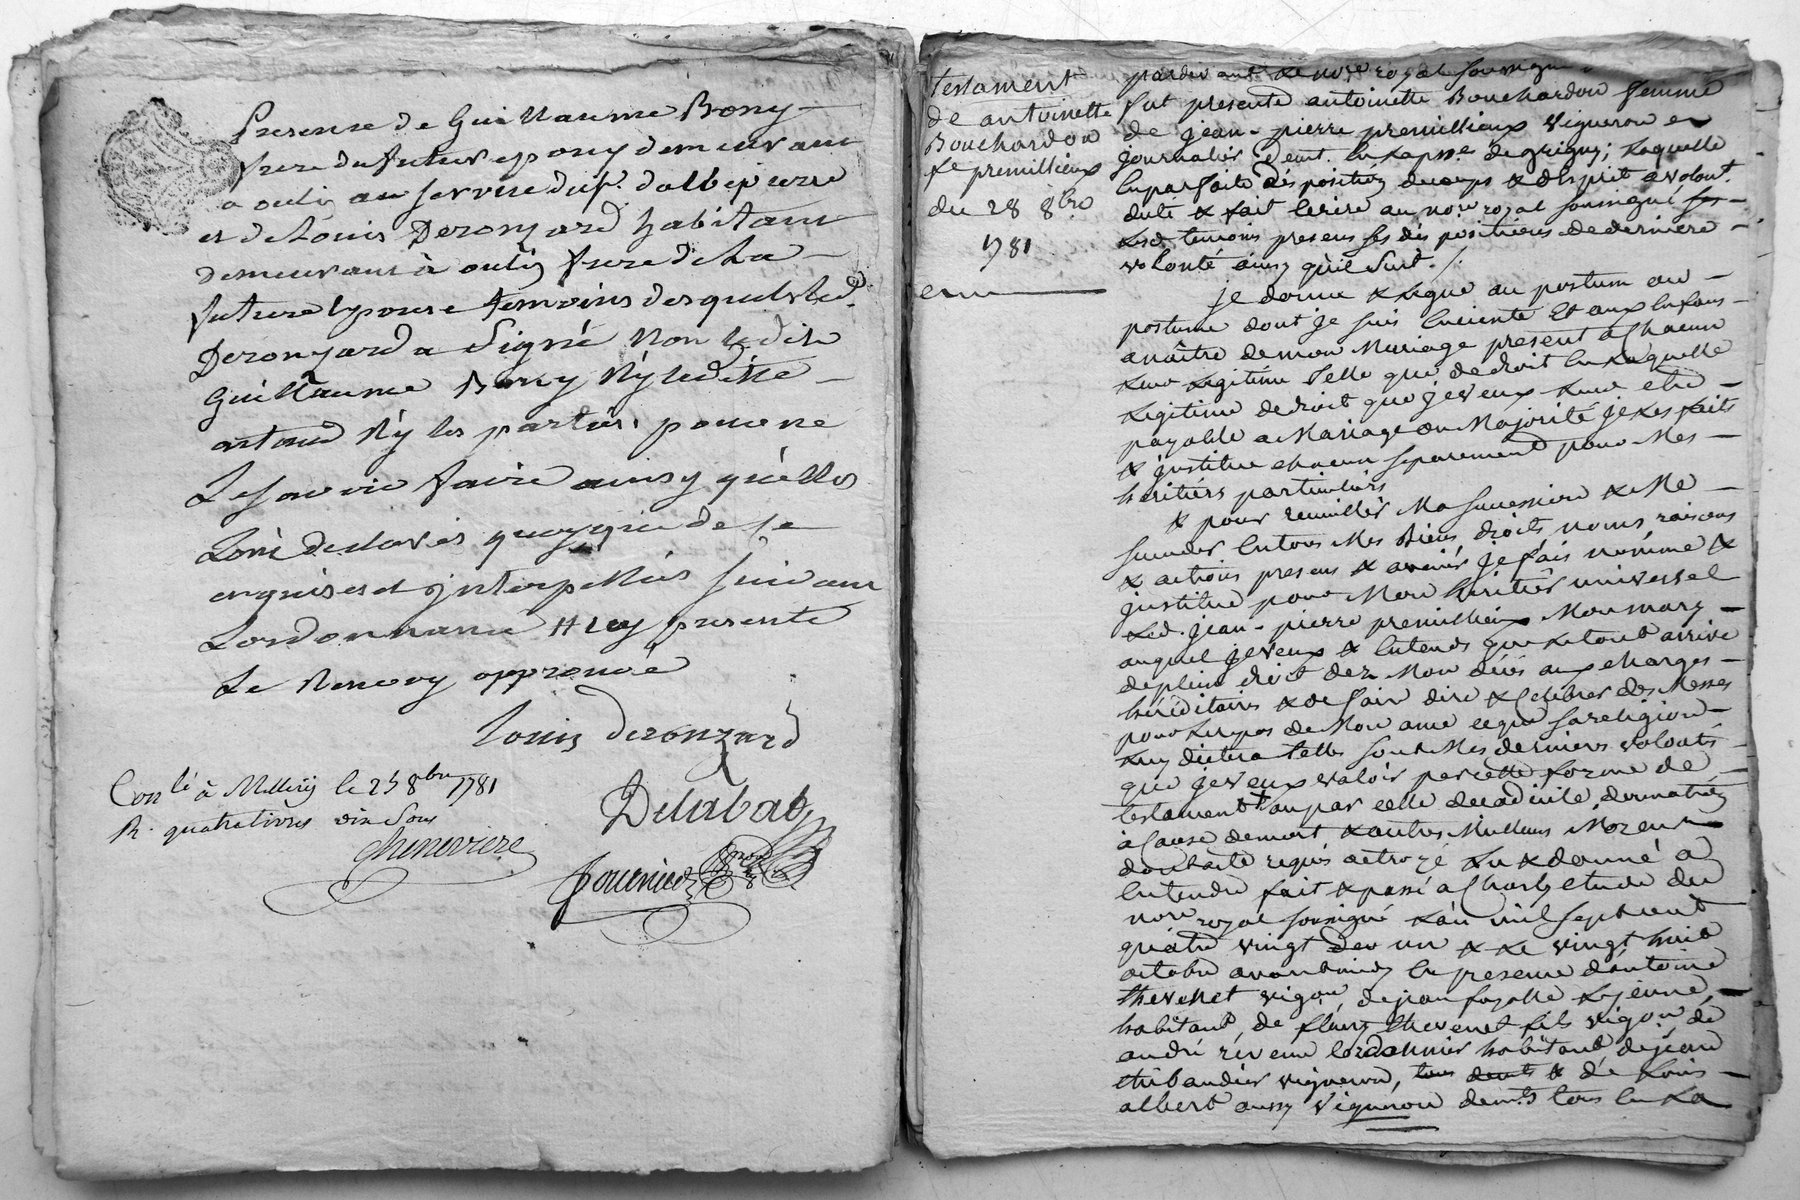 presence de Guillaume Bony
frere du futur epoux demeurant
a oulin au service du sr. dalbepierre
et de Louis Deronzard habitant
demeurant à oulin frere de La
future Epouse temoins desquels led.
Deronzard a Signé Non ledit
Guillaume Bony Ny laditte
artaud Ny les parties, pour ne
Le savoir faire ainsy quelles
Lont declarés quoyque de ce
enquises et interpellées suivant
Lordonnance Lus presente
Le Renvoy approuvé
Louis deronzard
Conlé à Millery le 25 8bre 1781
R. quatre livres dix Sous
Cheneviere
Delabat
fournier
testament
de antoinette
Bouchardon
fe premillieux
du 28 8bre
1781
par devant Le nore royal soussigné
fut presente antoinette Bouchardon femme
de jean-pierre premillieux vigneron et
journalier demt. en La psse de grigny; Laquelle
en parfaite disposition de corps & desprit a volont.
dicté & fait Ecrire au nore royal soussigné
Lesd. temoins presens ses dispositions de derniere
volonté ainsy qu'il suit./.
je donne & Legue au postum ou
postume dont je suis Enceinte Et aux Enfans
a naître de mon Mariage present a Chacun
Leur Legitime telle que de droit En Laquelle
Legitime de droit que je veux Leur etre
payable a Mariage ou Majorité je Les fait
& institue chacun separement pour Mes
heritiers particuliers
& pour recueillir Ma succession & Me
succeder En tous Mes Biens droits, noms, raisons
& actions presens & avenir je fais nomme &
institue pour Mon heritier universel
Led. jean-pierre premillieux Mon mary
auquel je veux & Entends que Le tout arrive
de plein droit dez Mon décès aux charges
héréditaires & de fair dire & Celebrer des Messes
pour Le repos de Mon ame ce que sa religion
Luy dictera telles sont Mes dernieres volontés
que je veux valoir par cette forme de
testament ou par celle de codicile, donnation
à Cause de mort & autres Meilleurs Moyens
dont acte requis octroyé Lu & donné a
Entendre fait & passé a Charly etude du
nore royal soussigné L'an mil sept cent
quatre vingt un & Le vingt huit
octobre avant midy En presence d'antoine
thevenet vigon, de jean fayolle Le jeune,
habitant, de fleury thevenet fils vigon, de
andré cordonnier habitant de jean
thibaudier vigneron, de Louis
albert aussy Vigneron demts tous En La